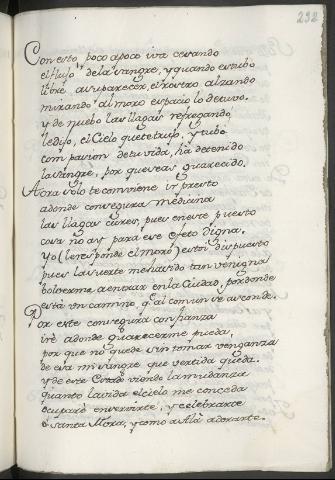 232
Con esto poco a poco iva cesando
el flujo de la sangre, y quando estubo
libre a su parecer, el rostro alzando
mirando al moro espacio lo detuvo.
y de nuebo las llagas refregando,
le dijo, el Cielo que te trujo, y tubo
compasion de tu vida, ha detenido
la sangre, por que seas guarecido.
Aora solo te conviene ir presto
adonde con segura medicina
las llagas cures, pues en este puesto
cosa no ay para ese efeto digna.
Yo (le responde el moro) estoi dispuesto
pues la suerte me ha sido tan venigna
bolverme a entrar en la Ciudad, por donde
está un camino q. al comun se asconde.
Por este con segura confianza
iré adonde guarecerme pueda,
por que no quede sin tomar venganza
de esa mi sangre que vertida queda.
y de este Estado viendo la mudanza
quanto la vida el cielo me conceda
ocuparé en servirte, y celebrarte
ó santa Mora, y como a Alá adorarte.